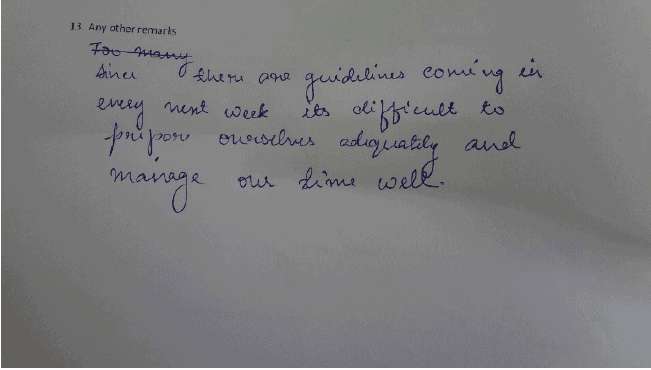 13. Any other remarks
Too many
Since there are guidelines coming in
every next week its difficult to
prepare ourselves adequately and
manage our time well.